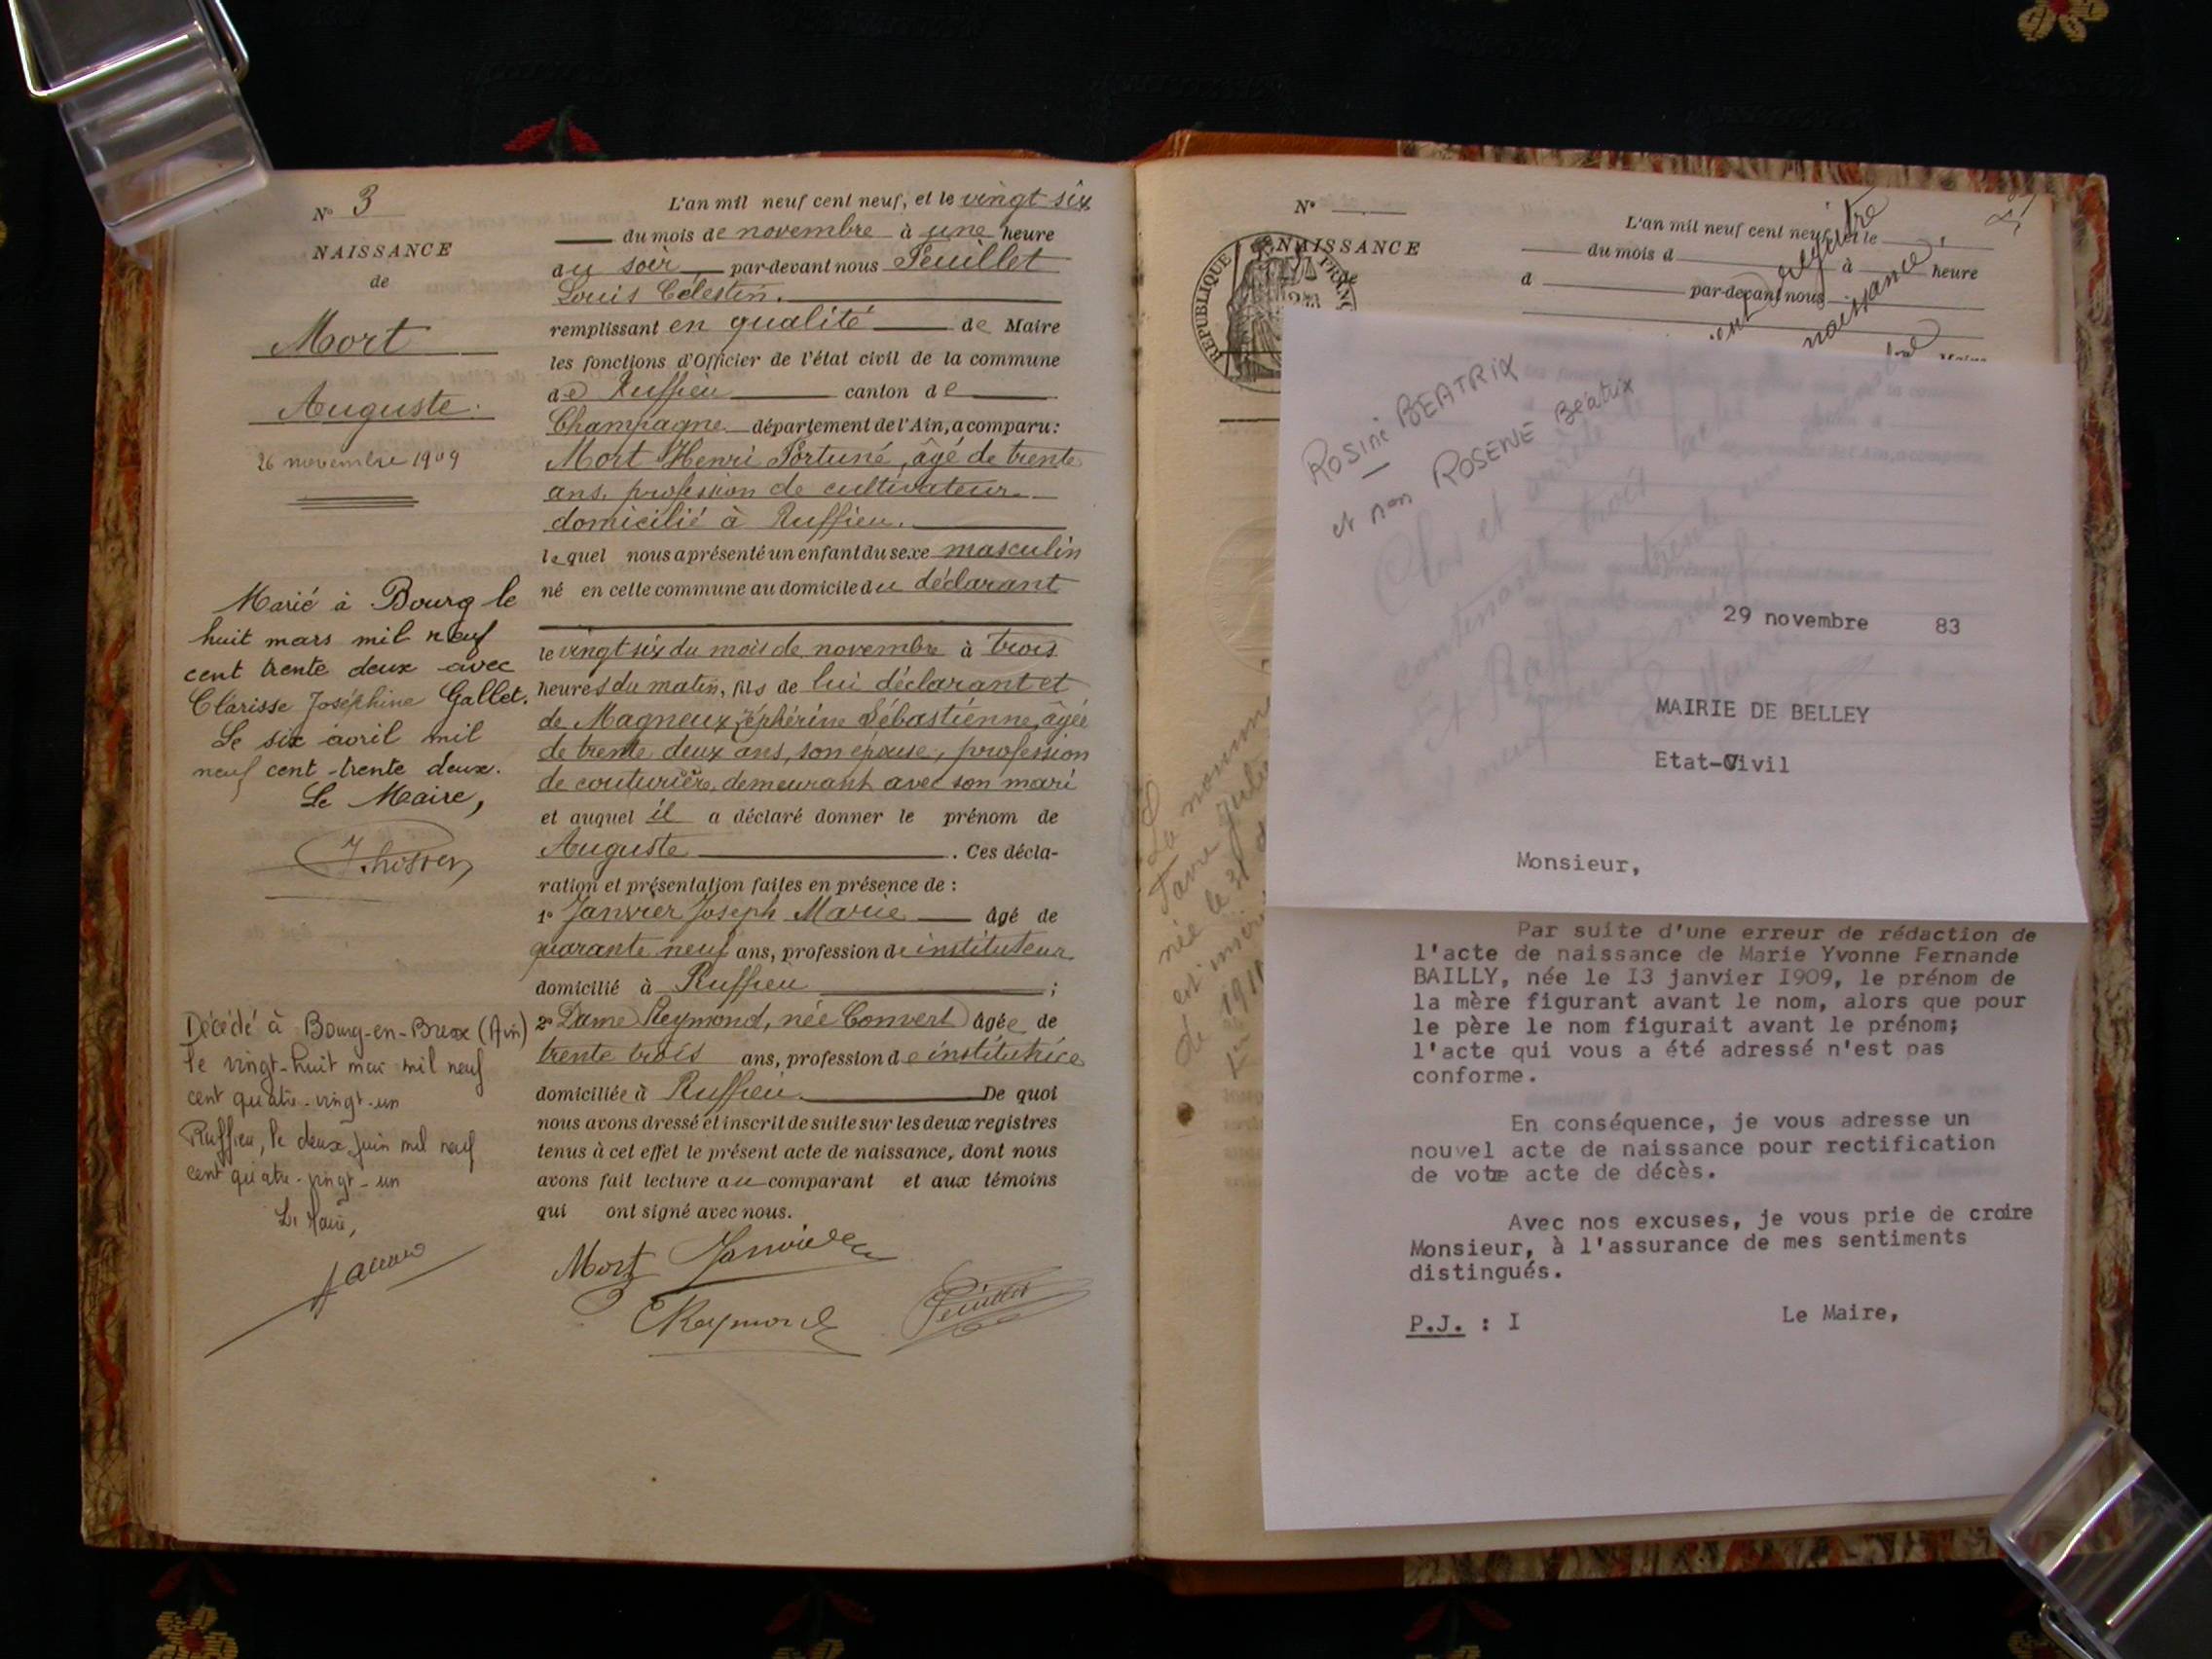 N° 3
NAISSANCE
de
Mort
Auguste.
26 novembre 1909
Marié à Bourg le
huit mars mil neuf
cent trente deux avec
Clarisse Joséphine Gallet.
Le six avril mil
neuf cent trente deux.
Le Maire,
Décédé à Bourg-en-Bresse (Ain)
le vingt-huit mai mil neuf
cent quatre-vingt-un
Ruffieu, le deux juin mil neuf
cent quatre-vingt-un
Le Maire,
L'an mil neuf cent neuf, et le vingt six
du mois de novembre à une heure
du soir, par-devant nous Feuillet
Louis Célestin.
remplissant en qualité de Maire
les fonctions d'Officier de l'état civil de la commune
de Ruffieu canton de
Champagne département de l'Ain, a comparu :
Mort Henri Fortuné, âgé de trente
ans, profession de cultivateur
domicilié à Ruffieu.
lequel nous a présenté un enfant du sexe masculin
né en cette commune au domicile du déclarant
le vingt six du mois de novembre à trois
heures du matin, fils de lui déclarant et
de Magneux Zéphérine Sébastienne, âgée
de trente deux ans, son épouse, profession
de couturière, demeurant avec son mari
et auquel il a déclaré donner le prénom de
Auguste . Ces décla-
ration et présentation faites en présence de :
1° Janvier Joseph Marie âgé de
quarante neuf ans, profession de instituteur
domicilié à Ruffieu ;
2° Dame Reymond, née Convert âgée de
trente trois ans, profession de institutrice
domiciliée à Ruffieu. De quoi
nous avons dressé et inscrit de suite sur les deux registres
tenus à cet effet le présent acte de naissance, dont nous
avons fait lecture au comparant et aux témoins
qui ont signé avec nous.
Mort Janvier
Reymond Feuillet
N°
NAISSANCE
de
REPUBLIQUE FRANÇ
L'an mil neuf cent neuf, et le
du mois d à heure
d par-devant nous
registre
naissance
La nomm
Favre Juli
née le 31 d
est inscri
de 1911
Rosine BEATRIX
et non ROSENE Béatrix
Clos et arrêté
contenant trois actes
29 novembre 83
MAIRIE DE BELLEY
Etat-Civil
Monsieur,
Par suite d'une erreur de rédaction de
l'acte de naissance de Marie Yvonne Fernande
BAILLY, née le I3 janvier I909, le prénom de
la mère figurant avant le nom, alors que pour
le père le nom figurait avant le prénom;
l'acte qui vous a été adressé n'est pas
conforme.
En conséquence, je vous adresse un
nouvel acte de naissance pour rectification
de votre acte de décès.
Avec nos excuses, je vous prie de croire
Monsieur, à l'assurance de mes sentiments
distingués.
P.J. : I Le Maire,